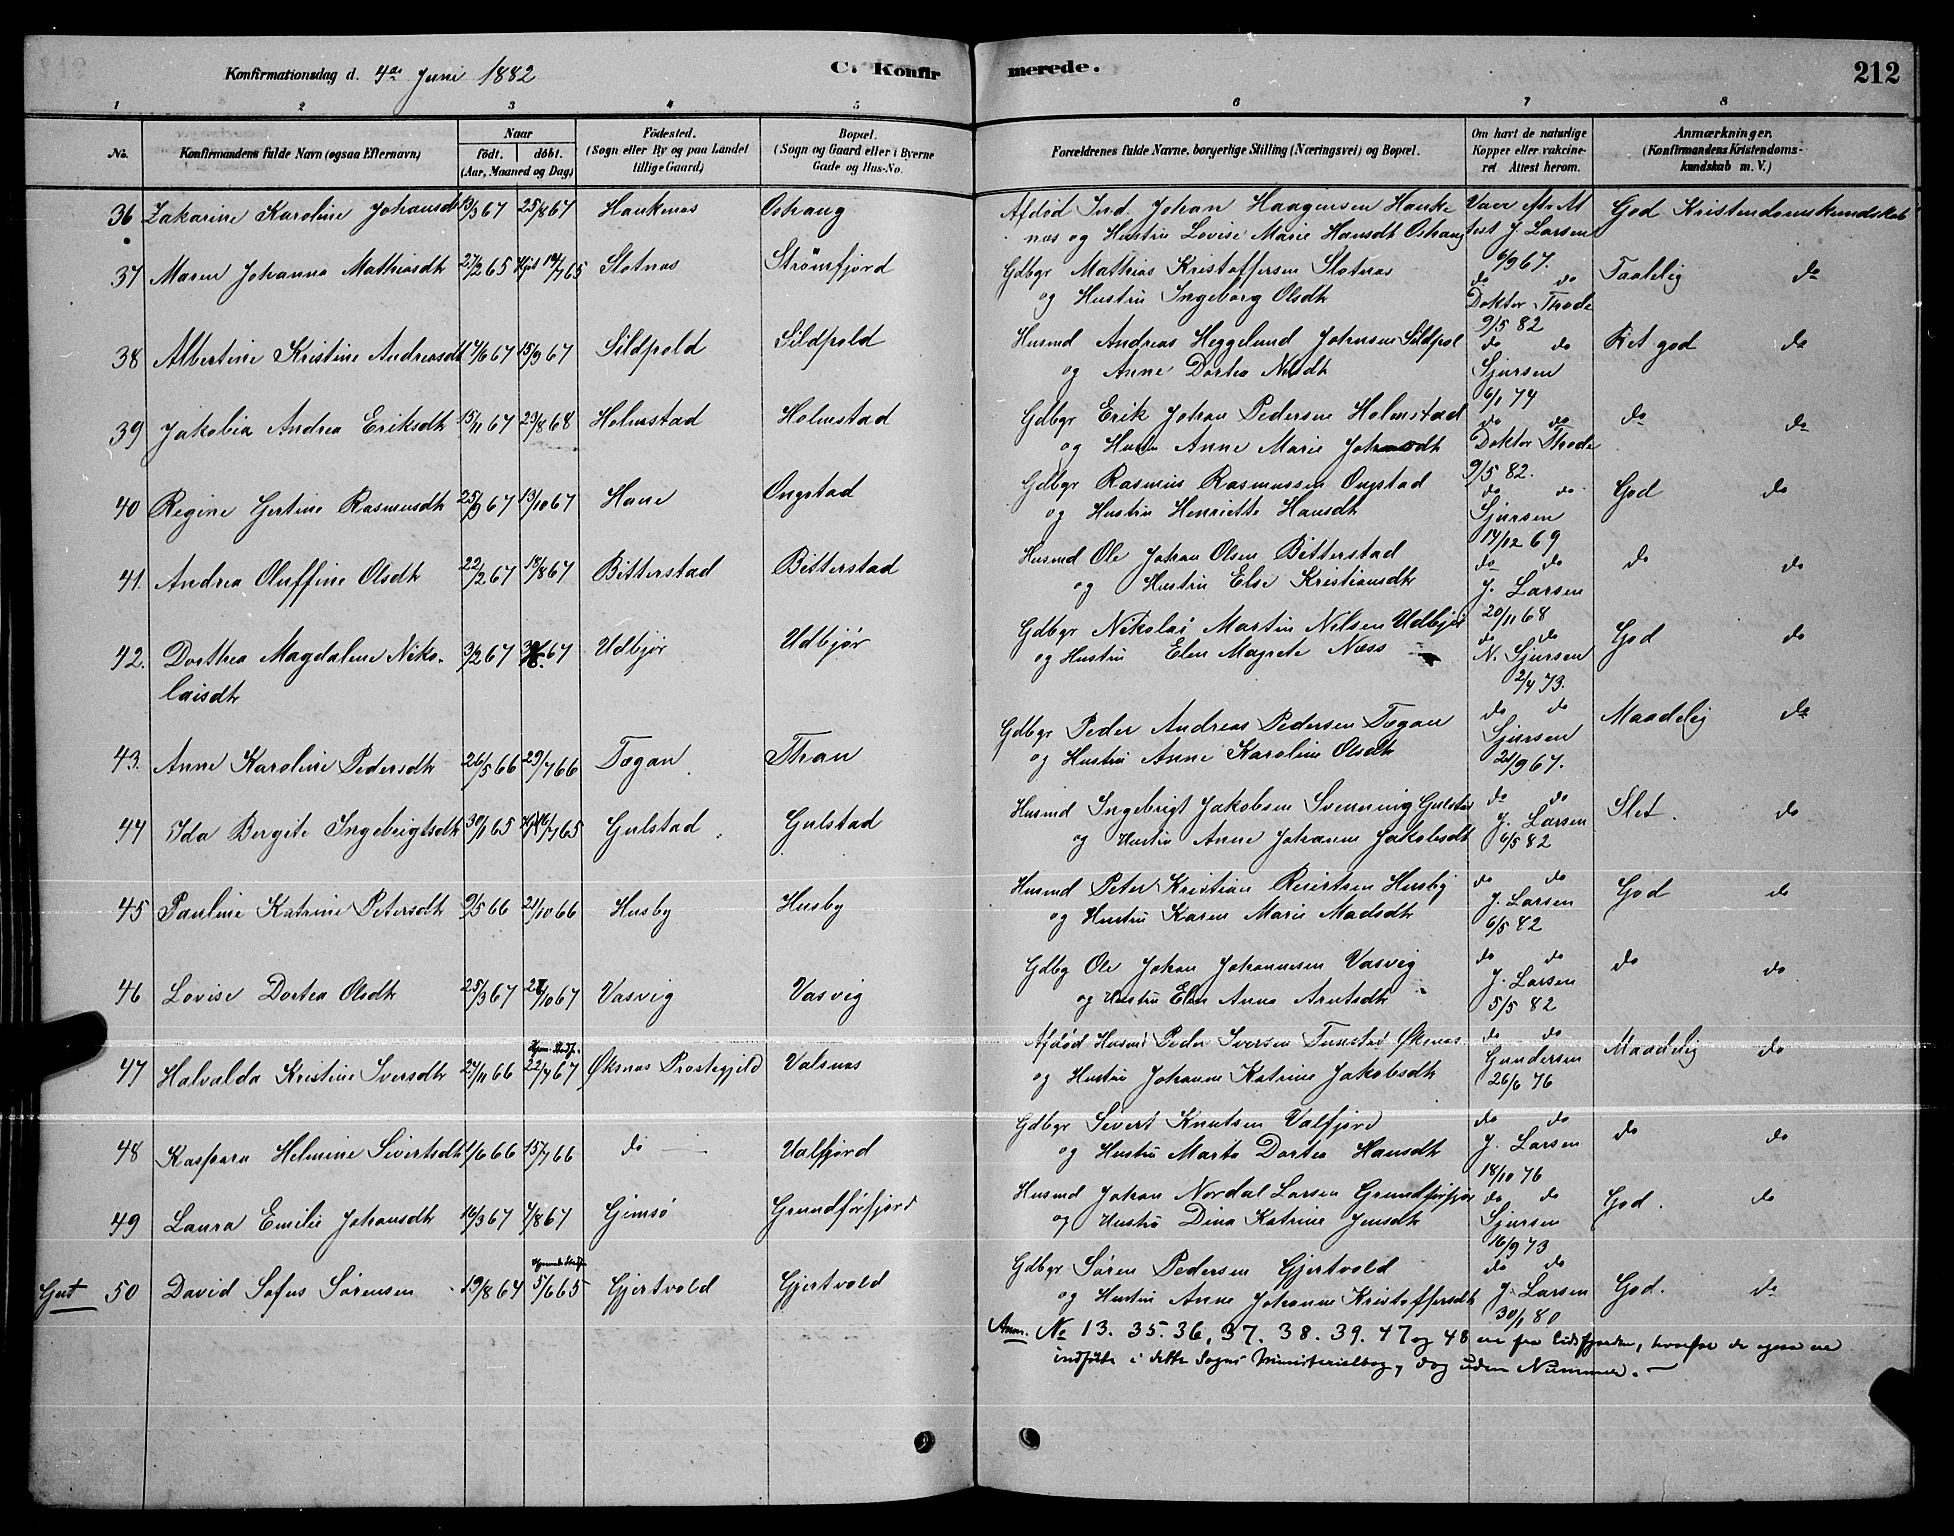 Konfirmationsdag d. 4de Juni 1882
C. Konfir
merede.
212
1 2 3 4 5 6 7 8
No.
Konfirmandens fulde Navn (ogsaa Efternavn)
Naar
födt. döbt.
(Aar, Maaned og Dag)
Födested.
(Sogn eller By og paa Landet
tillige Gaard)
Bopæl.
(Sogn og Gaard eller i Byerne
Gade og Hus-No.
Forældrenes fulde Navne, borgerlige Stilling (Næringsvei) og Bopæl.
Om havt de naturlige
Kopper eller vakcine-
ret Attest herom.
Anmærkninger.
(Konfirmandens Kristendoms-
kundskab m. V.)
36 Zakarine Karoline Johansdt 13/3 67 25/8 67 Haukenæs Oshaug Afdød Ind. Johan Haagensen Hauke Vacc efter At God Kristendomskundskab
næs og Hustru Lovise Marie Hansdt Oshaug test J. Larsen
6/9 67.
37 Maren Johanna Mathiasdt 27/2 65 Hjd 19/7 65 Slotnæs Strømfjord Gdbgr Mathias Kristoffersen Slotnæs do do Taalelig do
og Hustru Ingeborg Olsdt Doktor Thode
9/5 82
38 Albertine Kristine Andreasdt 17/6 67 15/9 67 Sildpold Sildpold Husmd Andreas Heggelund Johnsen Sildpol do do Ret god do
og Anne Dortea Nilsdt Sjursen
6/1 74
39 Jakobia Andrea Eriksdt 15/11 67 23/8 68 Holmstad Holmstad Gdbgr Erik Johan Pedersen Holmstad do do do do
og Hustru Anne Marie Johansdt Doktor Thode
9/5 82.
40 Regine Gertine Rasmusdt 25/9 67 13/10 67 Hane Ongstad Gdbgr Rasmus Rasmussen Ongstad do do God do
og Hustru Henriette Hansdt Sjursen
14/12 69
41 Andrea Oluffine Olsdt 22/2 67 18/8 67 Bitterstad Bitterstad Husmd Ole Johan Olsen Bitterstad do do do do
og Hustru Else Kristiansdt J. Larsen
20/11 68
42. Dorthea Magdalene Niko- 3/2 67 67 Udbjør Udbjør Gdbgr Nikolai Martin Nilsen Udbjør do do God do
laisdt og Hustru Elen Magrete Næss N. Sjursen
2/4 73.
43. Anne Karoline Pedersdt 26/5 66 29/7 66 Tøgan Thran Gdbgr Peder Andreas Pedersen Tøgan do do Maadelig do
og Hustru Anne Karoline Olsdt Sjursen
21/9 67.
44 Ida Bergite Ingebrigtsdt 30/1 65 Hjd 16/7 65 Gulstad Gulstad Husmd Ingebrigt Jakobsen Svenning Gulstad do do Slet. do
og Hustru Anne Johanne Jakobsdt J. Larsen
6/5 82
45 Pauline Katrine Petersdt 9/5 66 21/10 66 Husby Husby Husmd Peter Kristian Reiertsen Husby do do God do
og Hustru Karen Marie Madsdt J. Larsen
6/5 82
46 Lovise Dortea Olsdt 25/3 67 27/10 67 Vasvig Vasvig Gdbg Ole Johan Johannesen Vasvig do do do do
og Hustru Elen Anna Arntsdt J. Larsen
5/5 82
47 Halvalda Kristine Iversdt 24/11 66 22/7 67 Øksnæs Prestegjeld Valsnæs Afdød Husmd Peder Iversen Tunstad Øksnæs do do Maadelig do
og Hustru Johanne Katrine Jakobsdt Gundersen
26/6 76
48 Kaspara Helmine Sivertsdt 1/6 66 15/7 66 do Valfjord Gdbgr Sivert Knutsen Valfjord do do do do
og Hustru Marta Dortea Hansdt J. Larsen
18/10 76
49 Laura Emilie Johansdt 16/3 67 4/8 67 Gimsø Grundførfjord Husmd Johan Nordal Larsen Grundførfjor do do God. do
og Hustru Dina Katrine Jensdt Sjursen
16/9 73
Gut 50 David Sofus Sørensen 19/8 64 5/6 65 Gjertvold Gjertvold Gdbgr Søren Pedersen Gjertvold do do God. do
og Hustru Anne Johanne Kristoffersdt J. Larsen
30/1 80
Anm. No 13. 35. 36, 37. 38. 39. 47 og 48 ere fra Eidsfjorden, hvorfor de ogsaa ere
indførte i dette Sogns Ministerialbog, dog uden Nummer. —